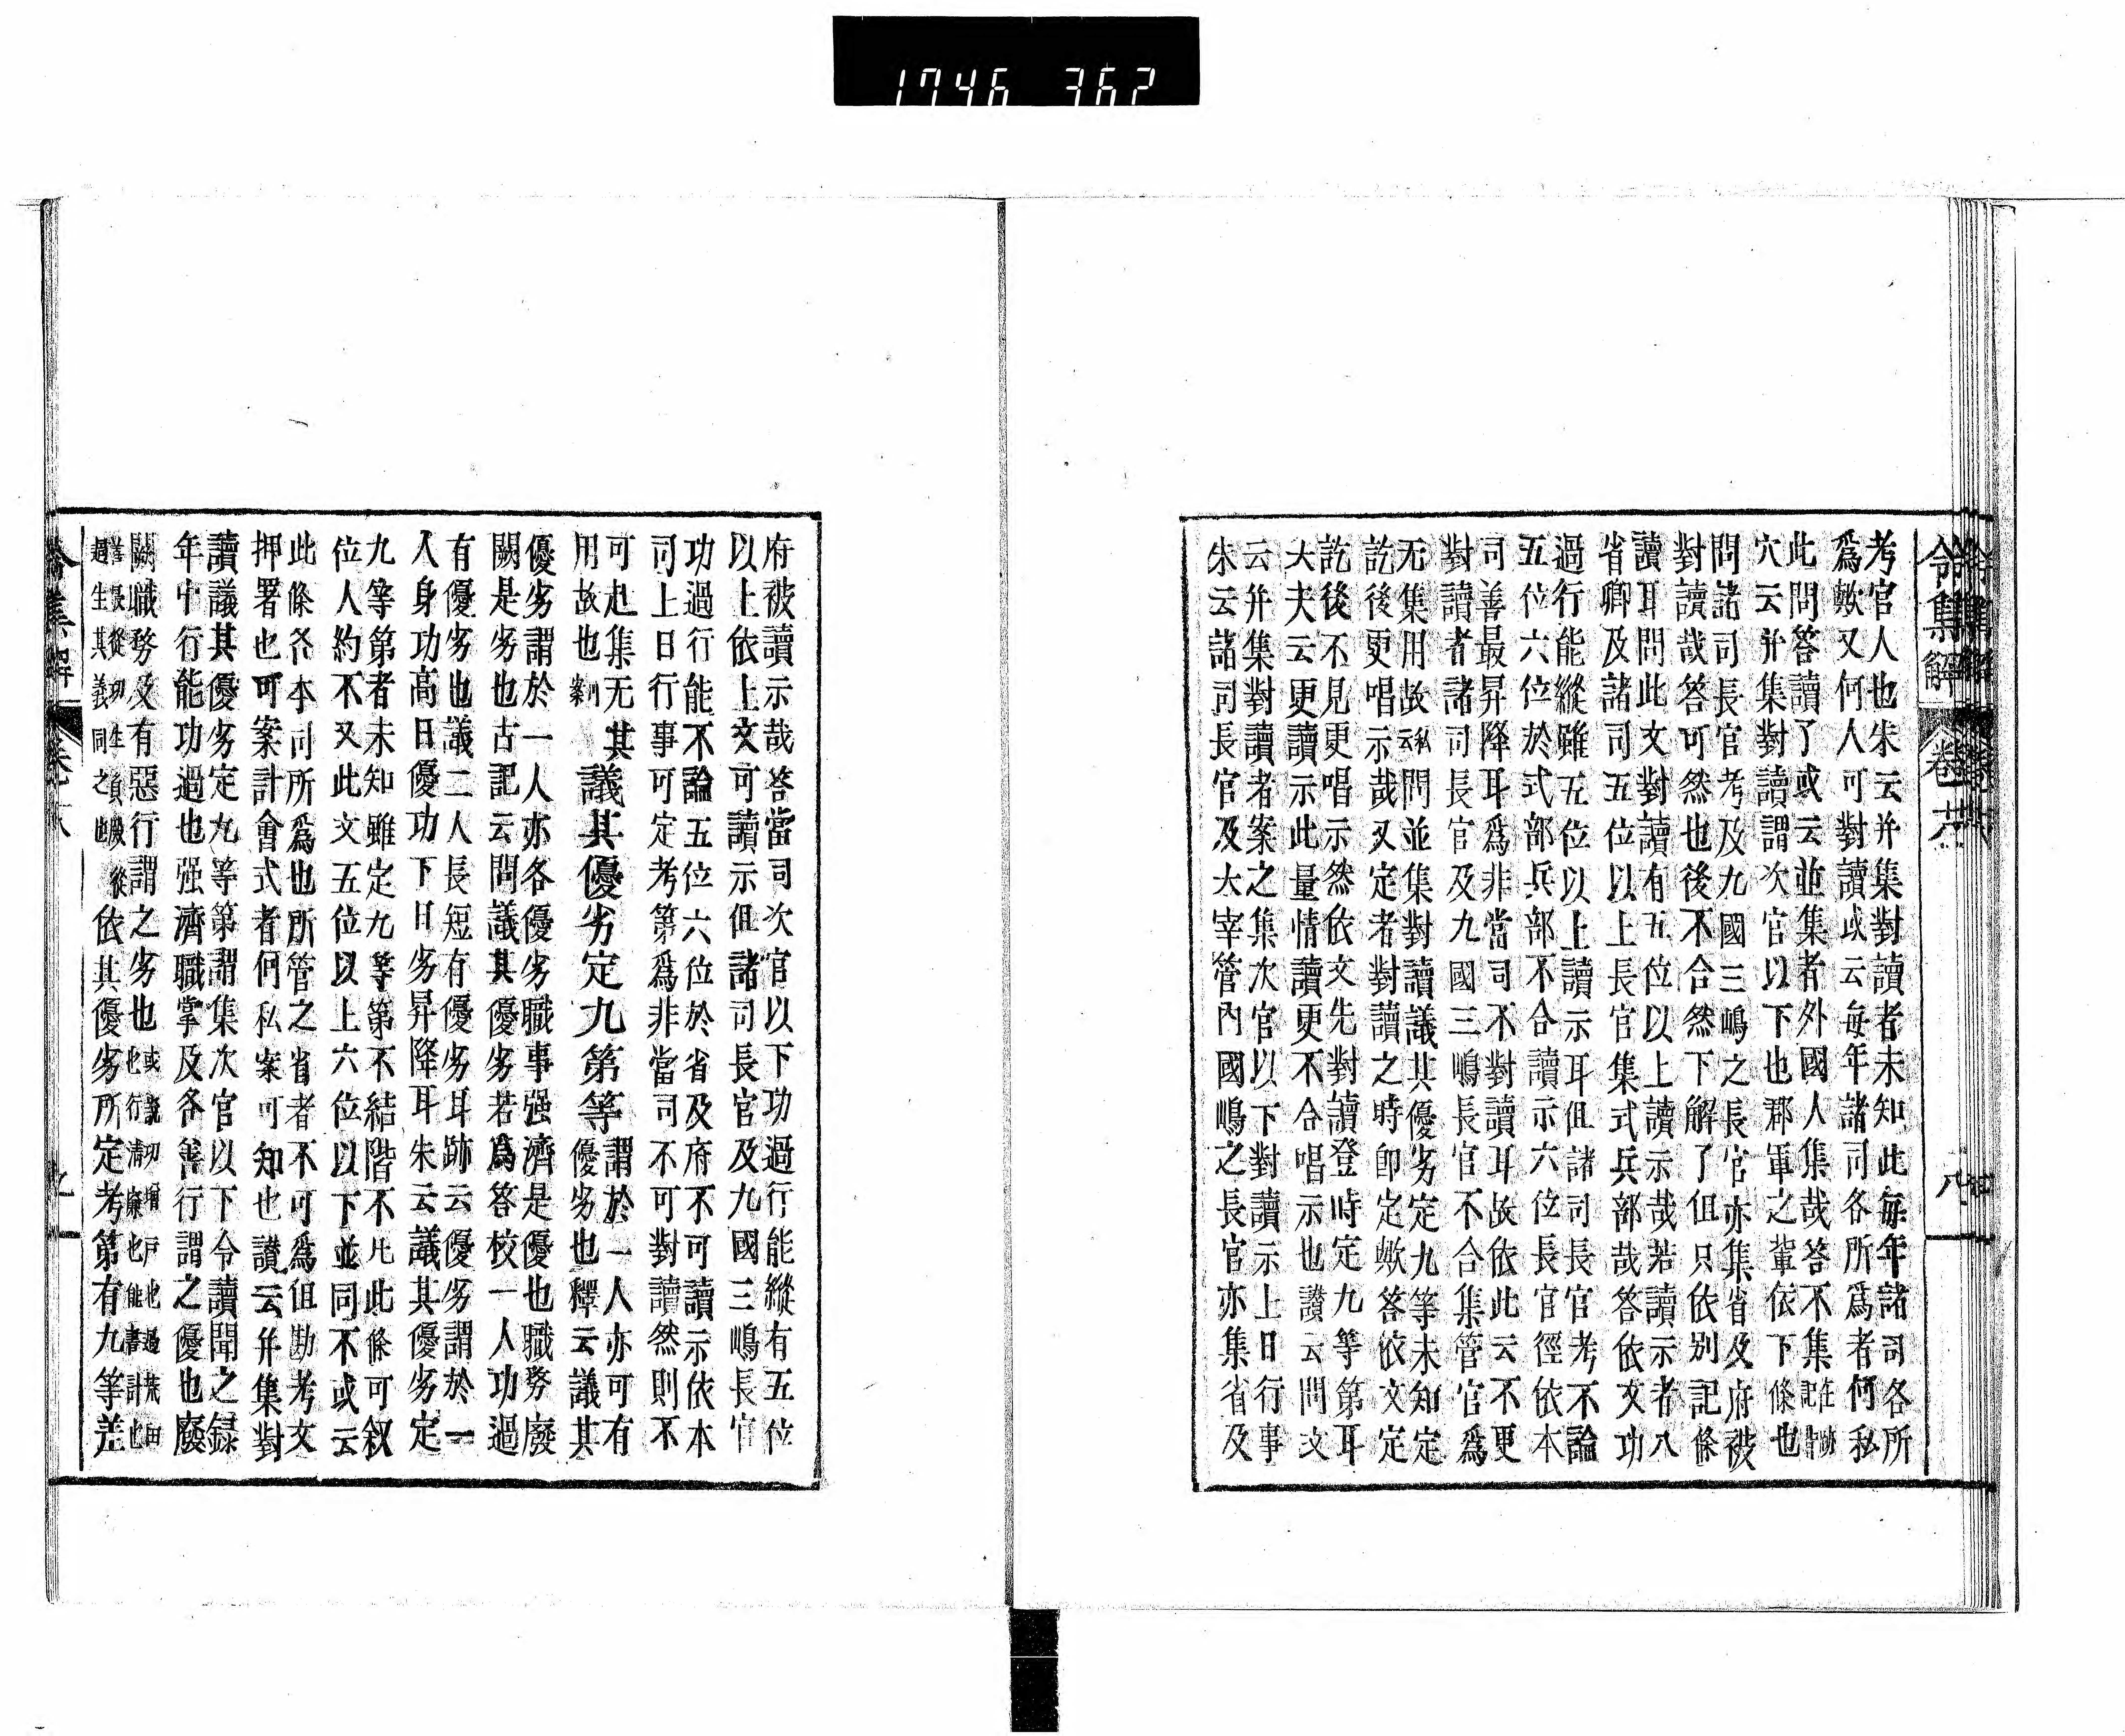 1746 362
令集解 卷十八 八
考官人也朱云并集對讀者未知此每年諸司各所
爲歟又何人可對讀或云每年諸司各所爲者何私
此問答讀了或云並集者外國人集哉答不集
穴云并集對讀謂次官以下也郡軍之輩依下條也
問諸司長官考及九國三嶋之長官亦集省及府被
對讀哉答可然也後不合然下解了但只依別記條
讀耳問此文對讀有五位以上讀示哉若讀示者八
省卿及諸司五位以上長官集式兵部哉答依文功
過行能縱雖五位以上讀示耳但諸司長官考不論
五位六位於式部兵部不合讀示六位長官徑依本
司善最昇降耳爲非當司不對讀耳故依此云不更
對讀者諸司長官及九國三嶋長官不合集管官爲
无集用故云私問並集對讀議其優劣定九等未知定
訖後更唱示哉又定者對讀之時卽定歟答依文定
訖後不見更唱示然依文先對讀登時定九等第耳
大夫云更讀示此量情讀更不合唱示也讃云問文
云并集對讀者案之集次官以下對讀示上日行事
朱云諸司長官及大宰管內國嶋之長官亦集省及
府被讀示哉答當司次官以下功過行能縱有五位
以上依上文可讀示但諸司長官及九國三嶋長官
功過行能不論五位六位於省及府不可讀示依本
司上日行事可定考第爲非當司不可對讀然則不
可赴集无其
用故也
議其優劣定九第等
謂於一人亦可有
優劣也釋云議其
優劣謂於一人亦各優劣職事强濟是優也職務廢
闕是劣也古記云問議其優劣若爲答校一人功過
有優劣也議二人長短有優劣耳跡云優劣謂於一
人身功高日優功下日劣昇降耳朱云議其優劣定
九等第者未知雖定九等第不結階不此條可叙
位人約不又此文五位以上六位以下並同不或云
此條各本司所爲也所管之省者不可爲但勘考文
押署也可案計會式者何私案可知也讃云并集對
讀議其優劣定九等第謂集次官以下令讀聞之録
年中行能功過也强濟職掌及各善行謂之優也廢
闕職務及有惡行謂之劣也
依其優劣所定考第有九等差